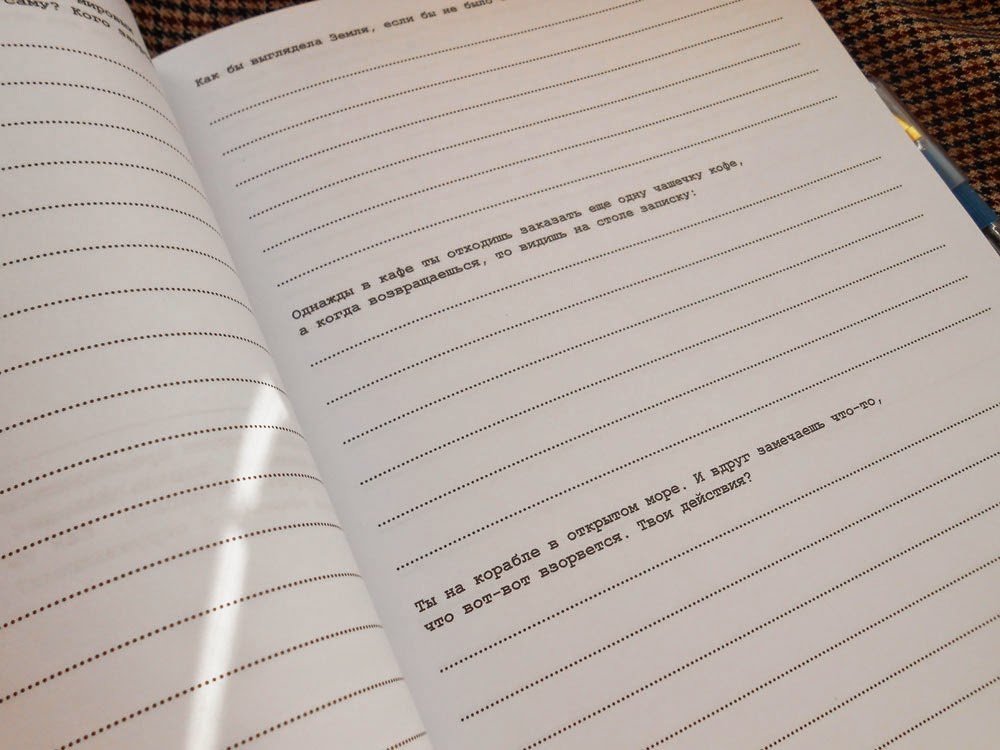 мировой
саму? Кого
Как бы выглядела Земля, если бы не было
Однажды в кафе ты отходишь заказать еще одну чашечку кофе,
а когда возвращаешься, то видишь на столе записку:
Ты на корабле в открытом море. И вдруг замечаешь что-то,
что вот-вот взорвется. Твои действия?